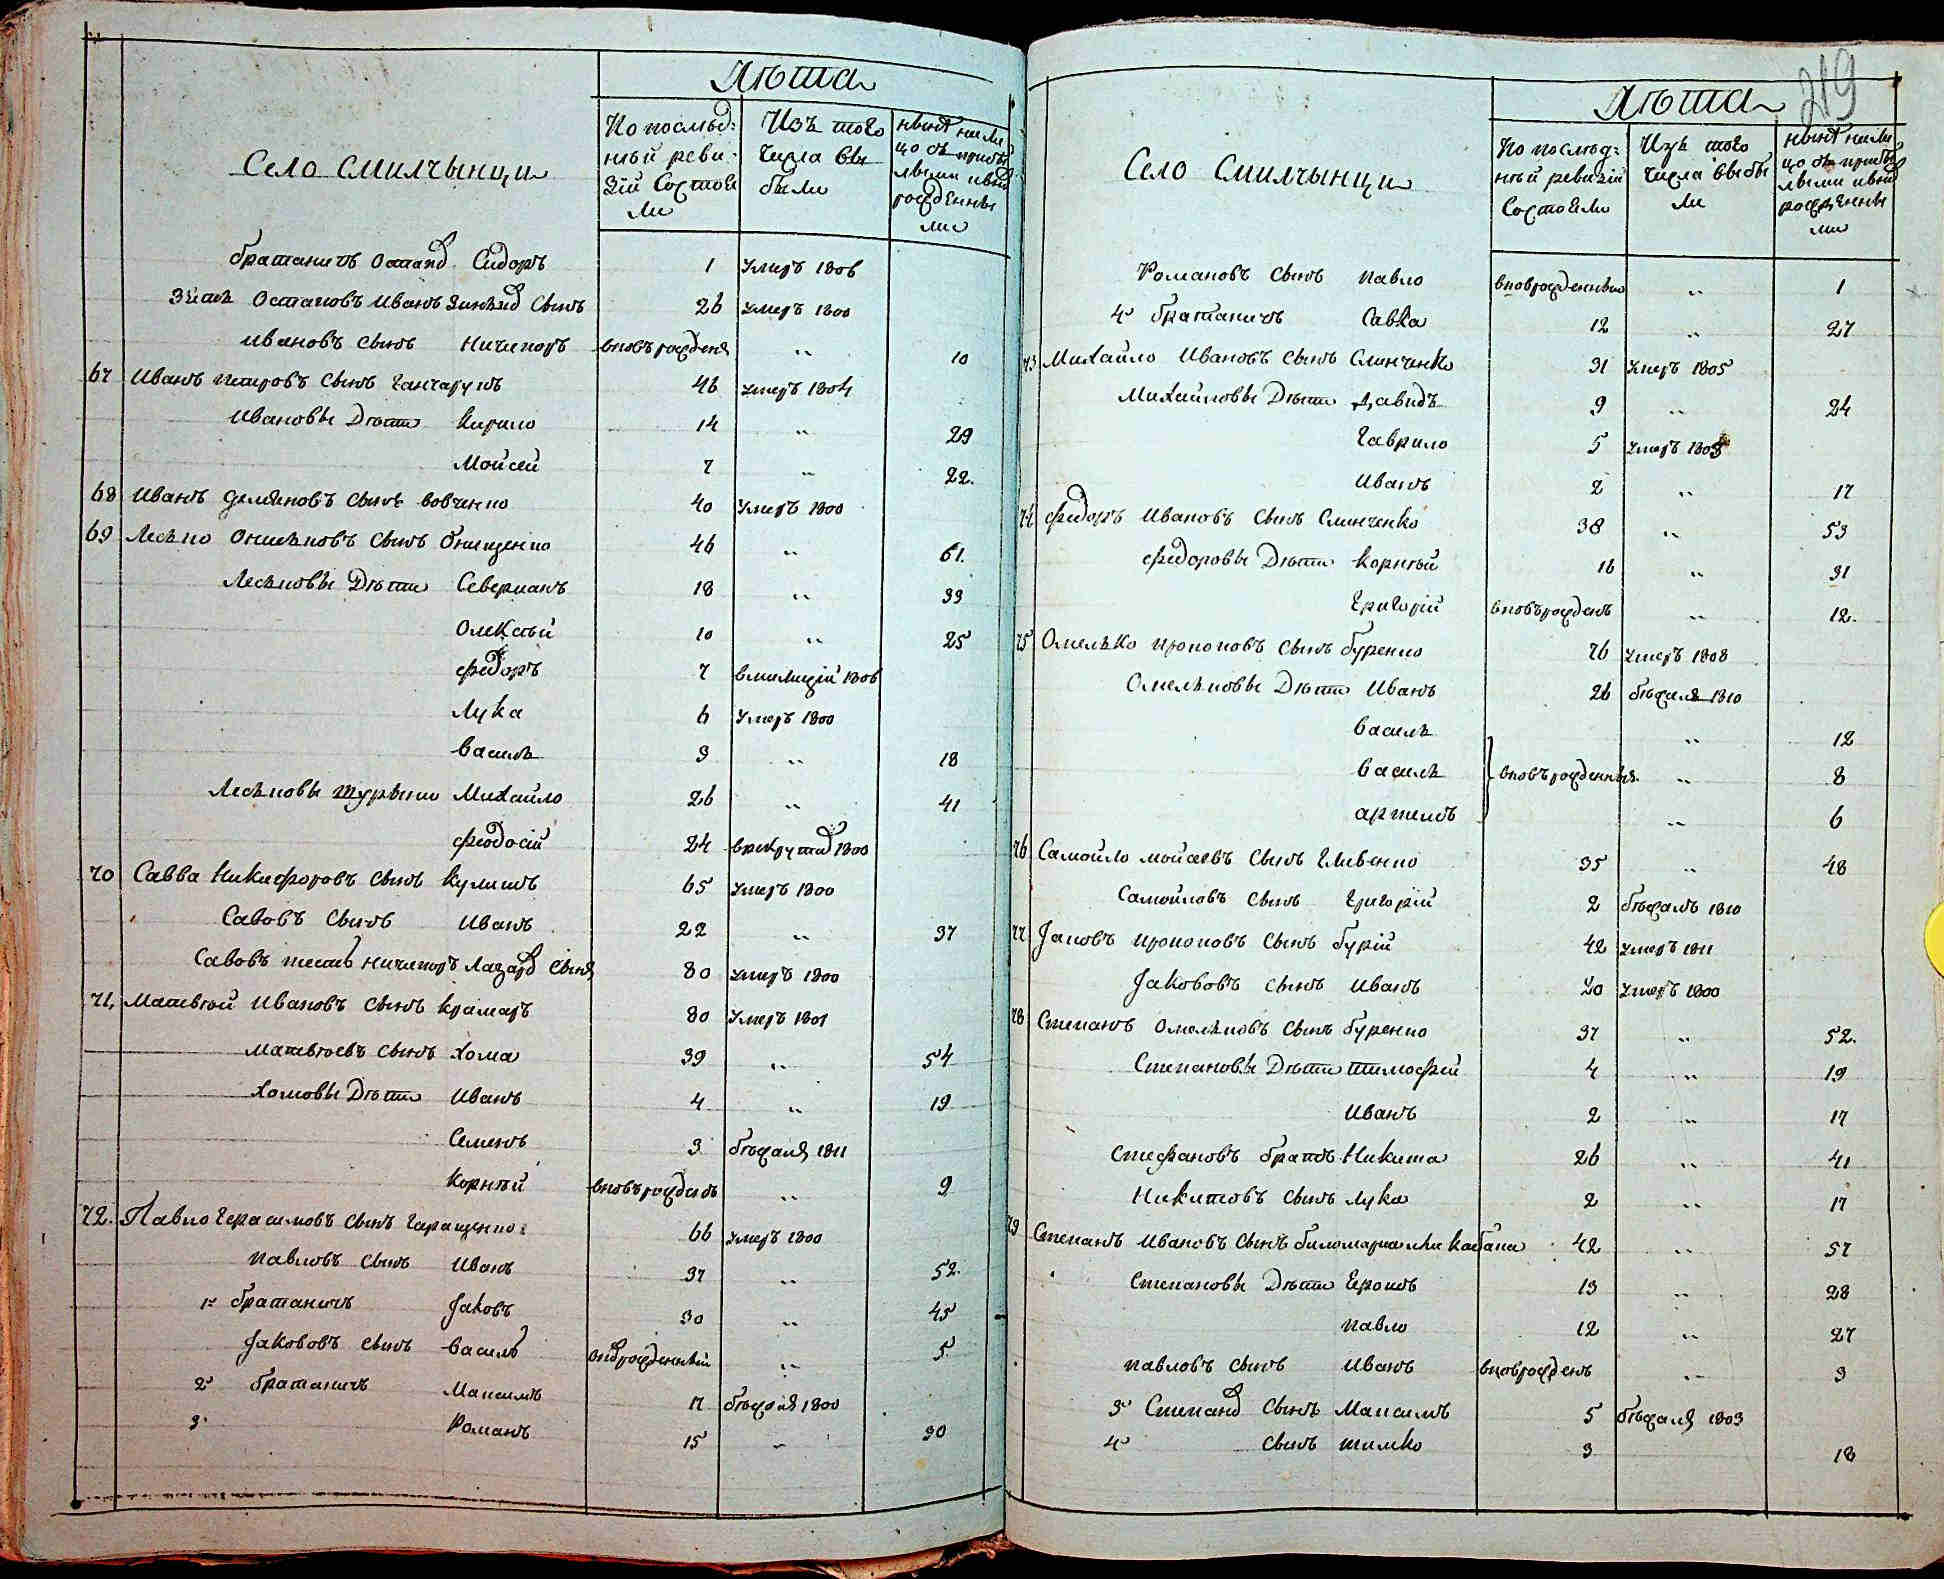 Лѣта
Село Смилчынци
По послѣд:
ней реви:
зіи Состоя
ли
Изъ того
числа вы
были
нынѣ на ли
цо съ прибы
лыми и вновь
рожденны
ми
братаничъ Остапа Сидоръ 1 умеръ 1806
Зять Остаповъ Иванъ Сынъ 26 умеръ 1800
Ивановъ Сынъ Ничипоръ вновь рожденъ „ 10
67 Иванъ Петровъ Сынъ Ганчарукъ 46 умеръ 1804
Ивановы Дѣти Кирило 14 „ 29
Мойсей 7 „ 22.
68 Иванъ Демяновъ Сынъ Вовченко 40 умеръ 1800
69 Леско Ониськовъ Сынъ Онищенко 46 „ 61.
Леськовы Дѣти Севериянъ 18 „ 33
Олексѣй 10 „ 25
Федоръ 7 в милиціи 1806
Лука 6 умеръ 1800
Василь 3 „ 18
Леськовы шурыни Михайло 26 „ 41
Феодосій 24 в рекруты 1800
70 Савва Никифоровъ Сынъ Кулишъ 65 умеръ 1800
Савовъ Сынъ Иванъ 22 „ 37
Савовъ тесть Ничипоръ Лазарев Сынъ 80 умеръ 1800
71 Матвѣй Ивановъ Сынъ Крамаръ 80 умеръ 1801
Матвѣевъ Сынъ Хома 39 „ 54
Хомовы Дѣти Иванъ 4 „ 19
Семенъ 3 бѣжалъ 1811
Корнѣй вновь рожденъ „ 9
72. Павло Герасимовъ Сынъ Геращенко 66 умеръ 1800
Павловъ Сынъ Иванъ 37 „ 52.
1й братаничъ Яковъ 30 „ 45
Яковъ Сынъ Василь вновь рожденный „ 5
2й братаничъ Максимъ 17 бѣжалъ 1800
3й Романъ 15 „ 30
219
Лѣта
Село Смилчынци
По послѣд:
ней ревизіи
Состояли
Изъ того
числа выбы
ли
нынѣ на ли
цо съ прибы
лыми и вновь
рожденны
ми
Романовъ Сынъ Павло вновь рожденный „ 1
4й братаничъ Савка 12 „ 27
73 Михайло Ивановъ Сынъ Слинченко 31 умеръ 1805
Михайловы Дѣти Давидъ 9 „ 24
Гаврило 5 умеръ 1805
Иванъ 2 „ 17
74 Федоръ Ивановъ Сынъ Слинченко 38 „ 53
Федоровы Дѣти Корнѣй 16 „ 31
Григорій вновь рожденъ „ 12.
75 Омелько Прокоповъ Сынъ Буренко 76 умеръ 1808
Омельковы Дѣти Иванъ 26 бѣжалъ 1810
Василь „ 12
Василь вновь рожденныя „ 8
Артемъ „ 6
76 Самойло Мойсѣевъ Сынъ Гливенко 35 „ 48
Самойловъ Сынъ Григорій 2 бѣжалъ 1810
77 Яковъ Прокоповъ Сынъ Бурій 42 умеръ 1811
Якововъ Сынъ Иванъ 20 умеръ 1800
78 Степанъ Омельковъ Сынъ Буренко 37 „ 52.
Степановы Дѣти Тимофей 4 „ 19
Иванъ 2 „ 17
Стефановъ братъ Никита 26 „ 41
Никитовъ Сынъ Лука 2 „ 17
79 Степанъ Ивановъ Сынъ 42 „ 57
Степановы Дѣти 13 „ 28
Павло 12 „ 27
Павловъ Сынъ Иванъ вновь рожденъ „ 3
3й Степана Сынъ Максимъ 5 бѣжалъ 1803
4й Сынъ Тимко 3 „ 18